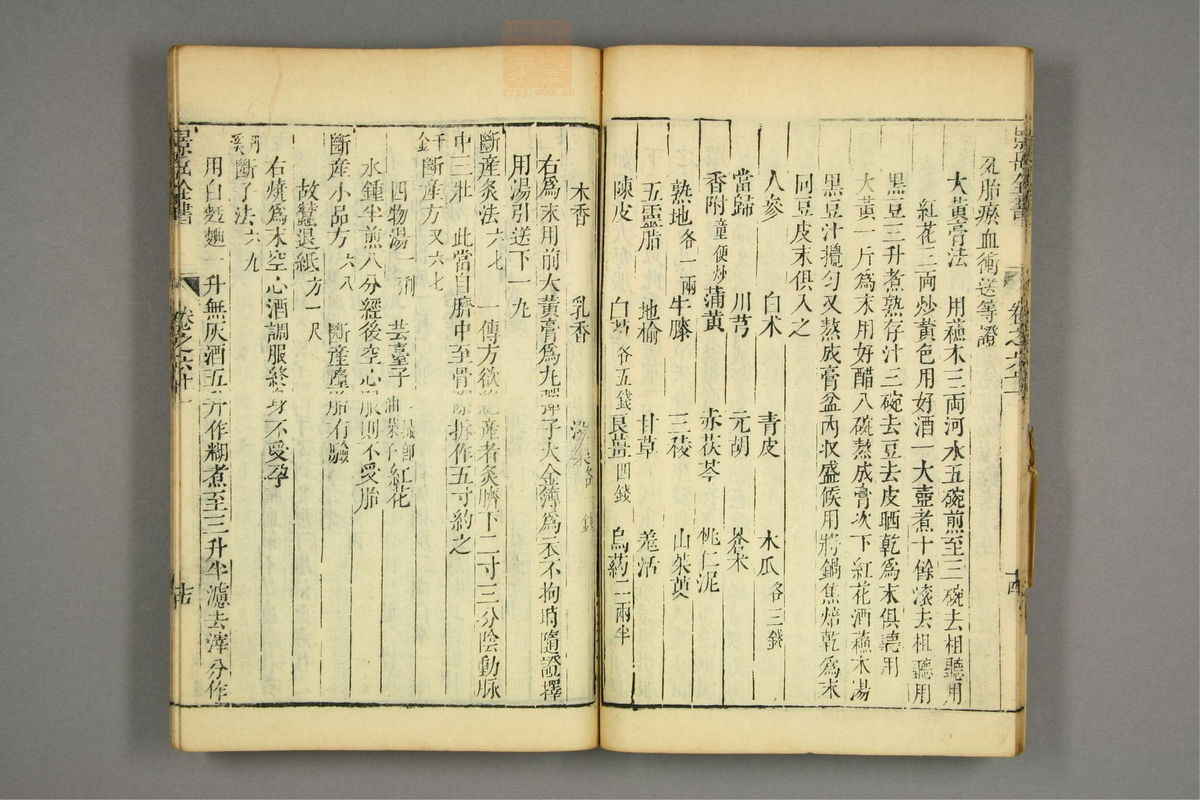 死胎瘀血衝逆等證
大黃膏法　用蘓木三両河水五碗煎至三碗去柤聽用
紅花三両炒黃色用好酒一大壺煮十餘滾去柤聽用
黑豆三升煮熟存汁三碗去豆去皮晒乾為末俱聽用
大黃一斤為末用好醋八碗熬成膏次下紅花酒蘓木湯
黑豆汁攪勻又熬成膏盆内収盛候用將鍋焦焙乾為末
同豆皮末俱入之
人參　白术　青皮　木瓜各三錢
當歸　川芎　元胡　蒼术
香附童便炒　蒲黃　赤茯苓　桃仁泥
熟地各一兩　牛膝　三稜　山茱萸
五靈脂　地榆　甘草　羗活
陳皮　白芍各五錢　良薑四錢　烏藥二兩半
木香　乳香　没藥
右為末用前大黃膏為丸彈子大金簿為衣不拘時隨證擇
用湯引送下一丸
斷産灸法六七　一傳方欲絶産者灸臍下二寸三分陰動脉
中三壯　此當自臍中至骨際折作五寸約之
千金斷産方又六七
四物湯一劑　芸薹子　油菜子　紅花
水鍾半煎八分經後空心服則不受胎
斷産小品方六八　斷産産胎有驗
故蠶退紙方一尺
右燒為末空心酒調服終身不受孕
丹溪斷子法六九
用白麵麯一升無灰酒五升作糊煮至三升半濾去滓分作
景岳全書　卷之六十一